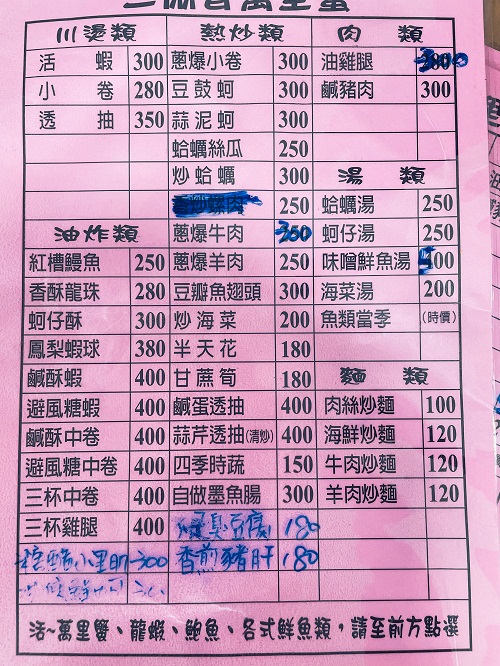 川燙類
活蝦 300
小卷 280
透抽 350
油炸類
紅槽鰻魚 250
香酥龍珠 280
蚵仔酥 300
鳳梨蝦球 380
鹹酥蝦 400
避風糖蝦 400
鹹酥中卷 400
避風糖中卷 400
三杯中卷 400
三杯雞腿 400
小里肌 300
熱炒類
蔥爆小卷 300
豆鼓蚵 300
蒜泥蚵 300
蛤蠣絲瓜 250
炒蛤蠣 300
250
蔥爆牛肉 300
蔥爆羊肉 250
豆瓣魚翅頭 300
炒海菜 200
半天花 180
甘蔗筍 180
鹹蛋透抽 400
蒜芹透抽(清炒) 400
四季時蔬 150
自做墨魚腸 300
臭豆腐 180
香煎豬肝 180
肉類
油雞腿 300
鹹豬肉 300
湯類
蛤蠣湯 250
蚵仔湯 250
味噌鮮魚湯
海菜湯 200
魚類當季 (時價)
麵類
肉絲炒麵 100
海鮮炒麵 120
牛肉炒麵 120
羊肉炒麵 120
活~萬里蟹、龍蝦、鮑魚、各式鮮魚類，請至前方點選